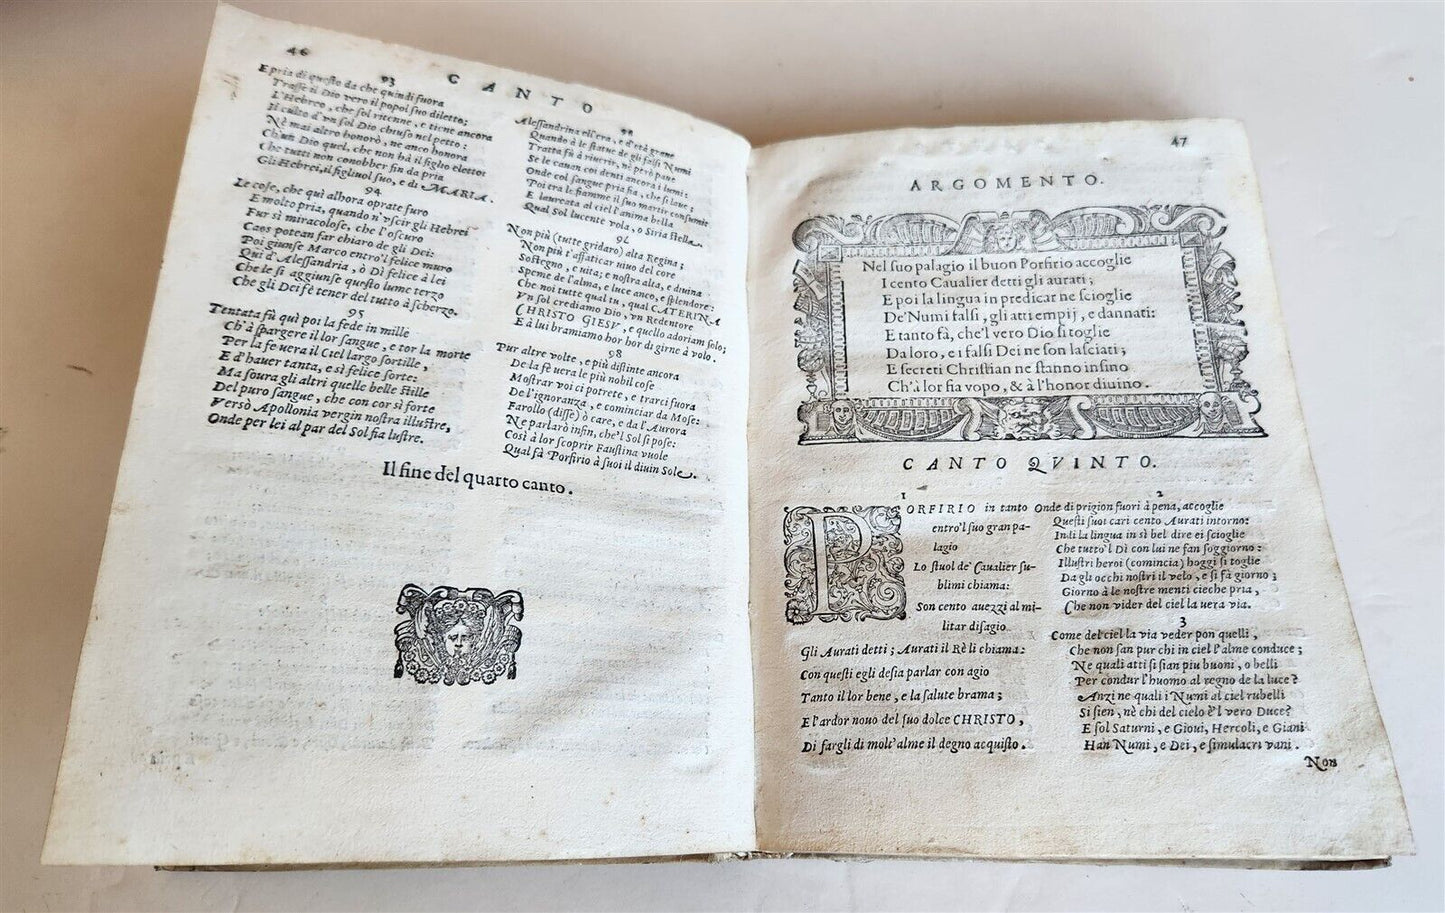 46
CANTO
93
E pria di questo da che quindi fuora
Trasse il Dio vero il popol suo diletto;
L'Hebreo, che sol ritenne, e tiene ancora
Il culto d'vn sol Dio chiuso nel petto:
Nè mai altro honorò, ne anco honora
Ch'un Dio quel, che non hà il figlio eletto:
Che tutti non conobber fin da pria
Gli Hebrei, il figliuol suo, e di MARIA.
94
Le cose, che quì alhora oprate furo
E molto pria, quando n'vscir gli Hebrei
Fur sì miracolose, che l'oscuro
Caos potean far chiaro de gli Dei:
Poi giunse Marco entro'l felice muro
Qui d'Alessandria, ò Dì felice à lei
Che le si aggiunse questo lume terzo
Che gli Dei fè tener del tutto à scherzo.
95
Tentata fù quì poi la fede in mille
Ch'à spargere il lor sangue, e tor la morte
Per la fe uera il Ciel largo sortille,
E d'hauer tanta, e sì felice sorte:
Ma soura gli altri quelle belle stille
Del puro sangue, che con cor sì forte
Versò Apollonia vergin nostra illustre,
Onde per lei al par del Sol fia lustre.
96
Alessandrina ell'era, e d'età graue
Quando à le statue de gli falsi Numi
Tratta fù à riuerir, nè però paue
Se le cauan coi denti ancora i lumi:
Onde col sangue pria fia, che si laue;
Poi era le fiamme il suo martir consumie
E laureata al ciel l'anima bella
Qual Sol lucente vola, o Siria stella.
97
Non più (tutte gridaro) alta Regina;
Non più t'affaticar uiuo del core
Sostegno, e uita; e nostra alta, e diuina
Speme de l'alma, e luce anco, e splendore:
Che noi tutte qual tu, qual CATERINA
Vn sol crediamo Dio, vn Redentore
CHRISTO GIESV, e quello adoriam solo;
E à lui bramiamo hor hor di girne à volo.
98
Pur altre volte, e più distinte ancora
De la fè uera le più nobil cose
Mostrar voi ci potrete, e trarci fuora
De l'ignoranza, e cominciar da Mose:
Farollo (disse) ò care, e da l'Aurora
Ne parlarò infin, che'l Sol si pose:
Così à lor scoprir Faustina vuole
Qual fà Porfirio à suoi il diuin Sole.
Il fine del quarto canto.
47
ARGOMENTO.
Nel suo palagio il buon Porfirio accoglie
I cento Caualier detti gli aurati;
E poi la lingua in predicar ne scioglie
De'Numi falsi, gli atti empij, e dannati:
E tanto fà, che'l vero Dio si toglie
Da loro, e i falsi Dei ne son lasciati;
E secreti Christian ne stanno insino
Ch'à lor fia vopo, & à l'honor diuino.
CANTO QVINTO.
1
PORFIRIO in tanto
entro'l suo gran pa-
lagio
Lo stuol de' Caualier su-
blimi chiama:
Son cento auezzi al mi-
litar disagio
Gli Aurati detti; Aurati il Rè li chiama:
Con questi egli desia parlar con agio
Tanto il lor bene, e la salute brama;
E l'ardor nouo del suo dolce CHRISTO,
Di fargli di molt'alme il degno acquisto.
2
Onde di prigion fuori à pena, accoglie
Questi suoi cari cento Aurati intorno:
Indi la lingua in sì bel dire ei scioglie
Che tutto'l Dì con lui ne fan soggiorno:
Illustri heroi (comincia) hoggi si toglie
Da gli occhi nostri il velo, e si fà giorno;
Giorno à le nostre menti cieche pria,
Che non vider del ciel la uera via.
3
Come del ciel la via veder pon quelli,
Che non san pur chi in ciel l'alme conduce;
Ne quali atti si sian piu buoni, o belli
Per condur l'huomo al regno de la luce?
Anzi ne quali i Numi al ciel rubelli
Si sien, nè chi del cielo è'l vero Duce?
E sol Saturni, e Gioui, Hercoli, e Giani
Han Numi, e Dei, e simulacri vani.
Non